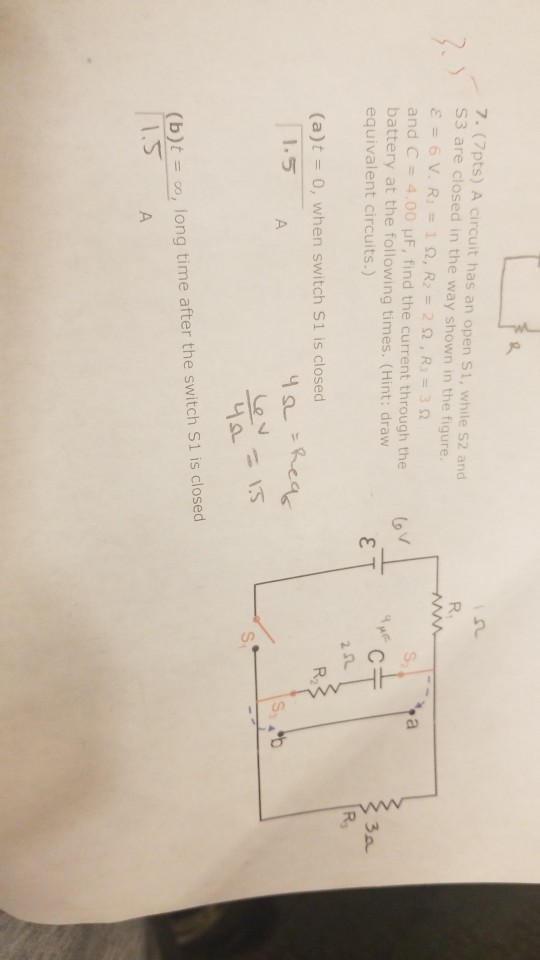 R
3.5
7. (7pts) A circuit has an open S1, while S2 and
S3 are closed in the way shown in the figure.
ε = 6 V. R1 = 1 Ω, R2 = 2 Ω, R3 = 3 Ω
and C = 4.00 μF, find the current through the
battery at the following times. (Hint: draw
equivalent circuits.)
(a)t = 0, when switch S1 is closed
1.5 A
4Ω = Req
6V
4Ω = 1.5
(b)t = ∞, long time after the switch S1 is closed
1.5 A
1Ω
R1
6V
ε
S2
a
4μF
C
2Ω
R2
3Ω
R3
S3
b
S1